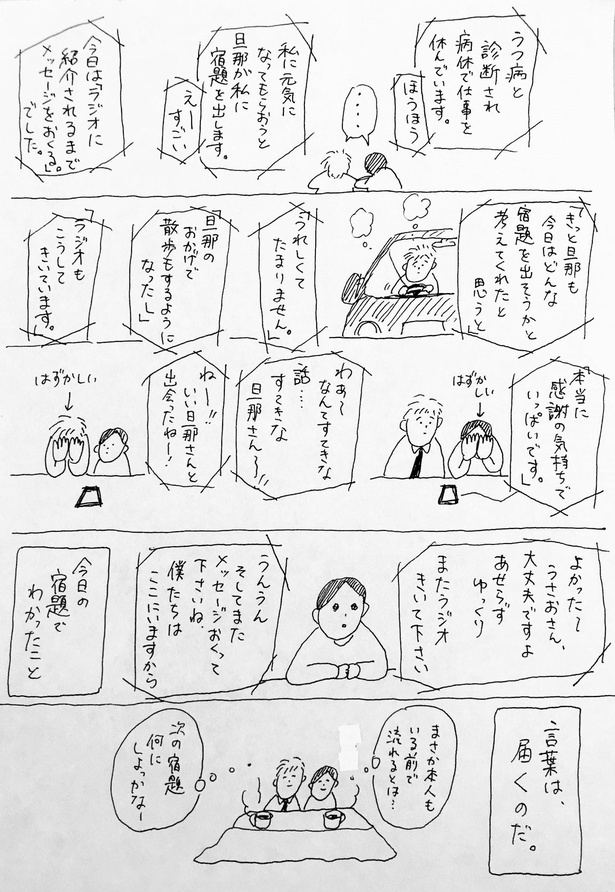 うつ病と
診断され
病休で仕事を
休んでいます。
ほうほう
・・・・
私に元気に
なってもらおうと
旦那が私に
宿題を出します。
えーすごい
今日は「ラジオに
紹介されるまで
メッセージをおくる。」
でした。
「きっと旦那も
今日はどんな
宿題を出そうかと
考えてくれたと
思うと」
「うれしくて
たまりません。」
「旦那の
おかげで
散歩もするように
なったし」
「ラジオも
こうして
きいています。」
「本当に
感謝の気持ちで
いっぱいです。」
はずかしい
わぁ〜
なんてすてきな
話…
すてきな
旦那さん〜!!
ねー!!
いい旦那さんと
出会ったねー!
はずかしい
よかった〜
うさおさん、
大丈夫ですよ
あせらず
ゆっくり
またラジオ
きいて下さい
うんうん
そしてまた
メッセージおくって
下さいね、
僕たちは
ここにいますから
今日の
宿題で
わかったこと
言葉は、
届くのだ。
まさか本人も
いる前で
流れるとは…
次の宿題
何に
しよっかなー